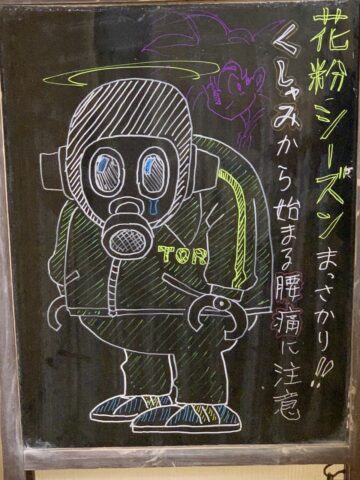 花粉シーズンまっさかり!!
くしゃみから始まる腰痛に注意
TOR